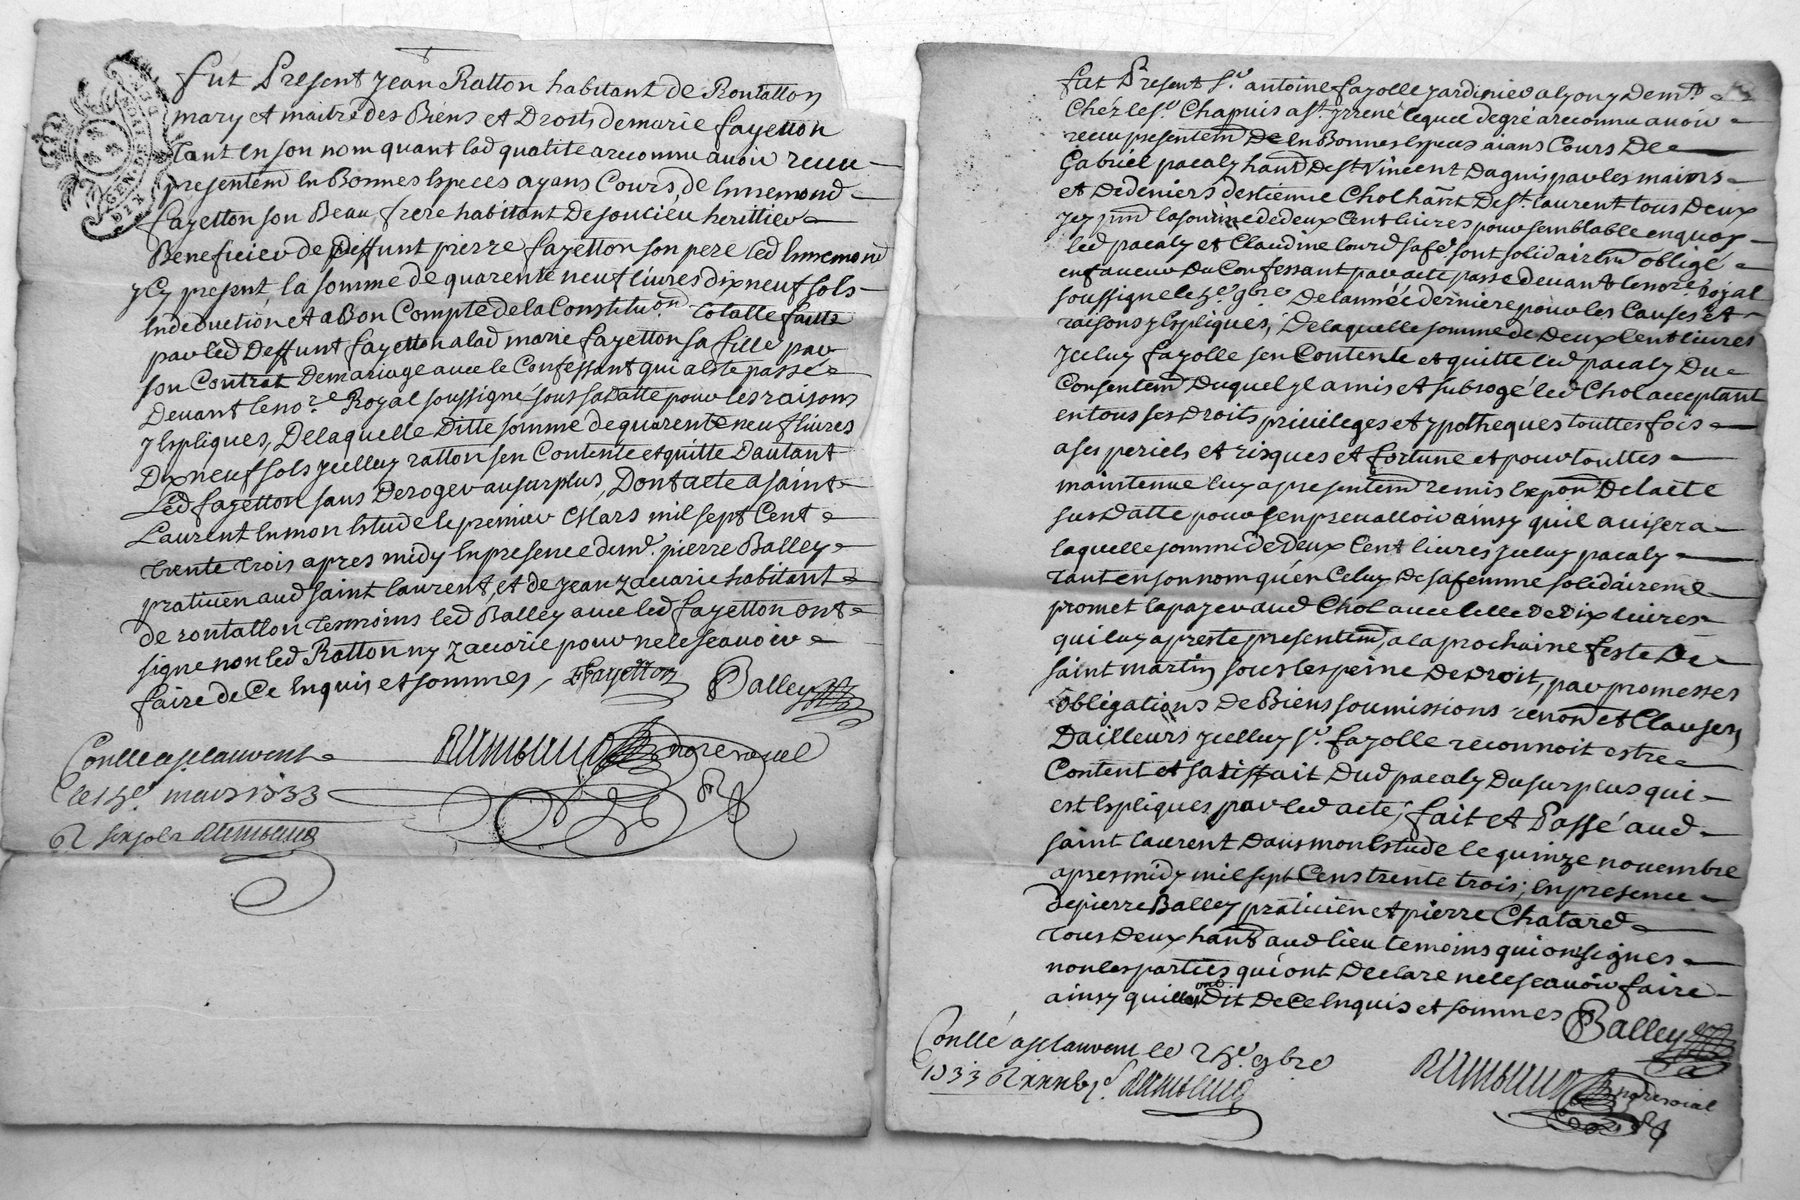 GEN. DE LYON
DIX DEN.
fut Present Jean Ratton habitant de Rontallon
mary et maitre des Biens et Droits de marie fayetton
tant en son nom quant lad qualité a reconnu avoir receu
presentem en Bonnes Especes ayans Cours, de Ennemond
fayetton son Beau frere habitant de soucieu herittier
Beneficier de Deffunt pierre fayetton son pere led Ennemond
yCy present, la somme de quarente neuf livres dix neuf sols
En deduction et a Bon Compte de la Constitu.on totalle faitte
par led Deffunt fayetton a lad marie fayetton sa fille par
son Contrat De mariage avec le Confessant qui a esté passé
Devant le no.re Royal soussigné sous sa datte pour les raisons
y Expliquees, De laquelle Ditte somme de quarente neuf livres
Dix neuf sols yCelluy ratton sen Contente et quitte Dautant
Led fayetton sans Deroger au surplus, Dont acte a saint
Laurent En mon Estude le premier Mars mil sept Cent
trente trois apres midy En presence de m.e pierre Balley
praticien aud saint laurent, et de jean zacarie habitant
de rontallon tesmoins led Balley avec led fayetton ont
signe non led Ratton ny zacarie pour ne le scavoir
faire de Ce Enquis et sommes, Efayetton Balley
no.re royal
Conllé a st laurent
le mars 1733
R six sols
fut Present s.r antoine fayolle jardinier a lyon Dem.t
Chez le s.r Chapuis a st. yrené lequel de gré a reconnu avoir
receu presentem De En Bonnes Especes aians Cours De
Gabriel pacaly hant De st Vincent Dagnis par les mains
et De deniers d'estienne Chol hant De st. laurent tous Deux
ycy pnd la somme de deux Cent livres pour semblable en quoy
led pacaly et Claudine sa fe. sont solidairem obligé
en faveur Du Confessant par acte passé devant le no.re royal
soussigné le 9bre De lannée derniere pour les Causes et
raisons y Expliquees, De laquelle somme de Deux Cent livres
yCeluy fayolle sen Contente et quitte led pacaly Du
Consentem Duquel yl a mis et subrogé led Chol acceptant
en tous ses Droits privileges et ypotheques touttes fois
a ses periels et risques et fortune et pour touttes
maintenue luy a presentem remis Expon De lacte
sus Datté pour sen prevalloir ainsy quil avisera
laquelle somme de Deux Cent livres yceluy pacaly
tant en son nom qu'en Celuy De sa femme solidairemt
promet la payer aud Chol avec Celle De Dix livres
qui luy a presté presentem, a la prochaine feste De
saint martin sous les peine De Droit, par promesses
obligations De Biens soumissions renon et Clauses
Dailleurs yCelluy s.r fayolle reconnoit estre
Content et satisffait Dud pacaly Du surplus qui
est Expliqués par led acte, fait et Passé aud
saint laurent Dans mon Estude le quinze novembre
apres midy mil sept Cens trente trois; En presence
de pierre Balley praticien et pierre Chatard
tous Deux hants aud lieu temoins qui on signes
non les parties qui ont Declaré ne le scavoir faire
ainsy quilles ont Dit De Ce Enquis et sommes
Balley
no.re royal
Conllé a st laurent le 9bre
1733